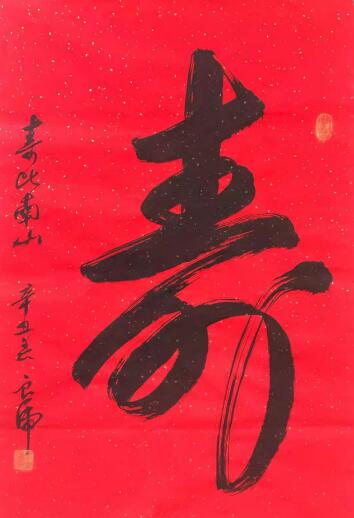 寿
寿比南山
辛丑